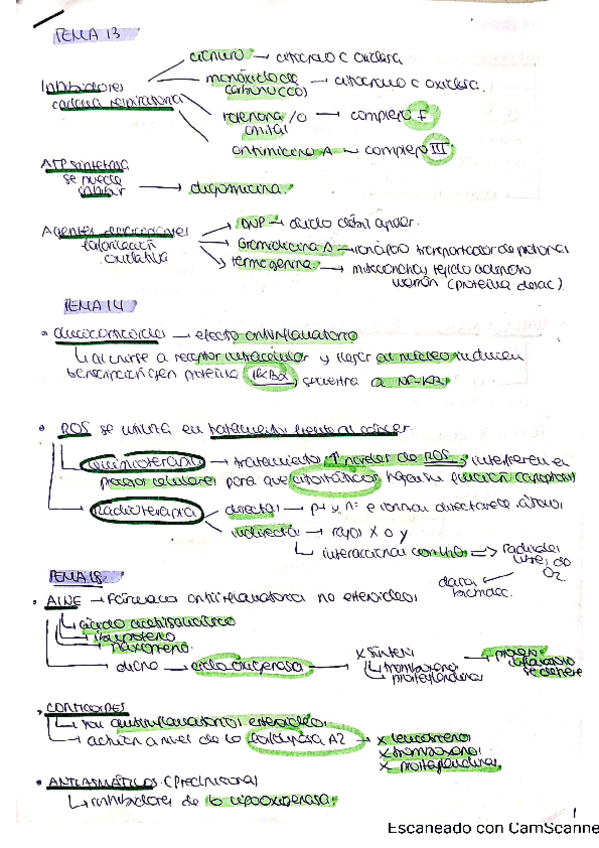 TEMA 13
cianuro → citocromo c oxidasa
Inhibidores cadena respiratoria
monóxido de carbono (CO) → citocromo c oxidasa.
rotenona /o amital → complejo I
antimicina A → complejo III
ATP sintetasa se puede inhibir → oligomicina.
Agentes desacoplantes fosforilación oxidativa
DNP → ácido débil
Gramicidina A → ionóforo transportador de protones
termogenina → mitocondrias tejido adiposo marrón (proteína desac).
TEMA 14
• Glucocorticoides → efecto antiinflamatorio
↳ al unirse a receptor intracelular y llegar al núcleo inducen
transcripción gen proteína IKBα, secuestra a NF-KB.
• ROS se utiliza en tratamiento frente al cáncer.
Quimioterapia → tratamiento ↑ niveles de ROS, interfieren en
procesos celulares para que citostáticos hagan su función
Radioterapia
directa → p+ y n° e ionizan directamente
indirecta → rayos X o γ
↳ interaccionan con → radicales libres de O2
TEMA 18
• AINE → Fármacos antiinflamatorios no esteroideos
↳ ácido acetilsalicílico
↳ ibuprofeno
↳ naxopreno
diana → ciclooxigenasa → x síntesis
tromboxanos
prostaglandinas
→ proceso inflamatorio se detiene
• CORTICOIDES
↳ son antiinflamatorios esteroideos
↳ actúan a nivel de la fosfolipasa A2 → x leucotrienos
x tromboxanos
x prostaglandinas
• ANTIASMÁTICOS (prednisona)
↳ inhibidores de la lipooxigenasa
1
Escaneado con CamScanne